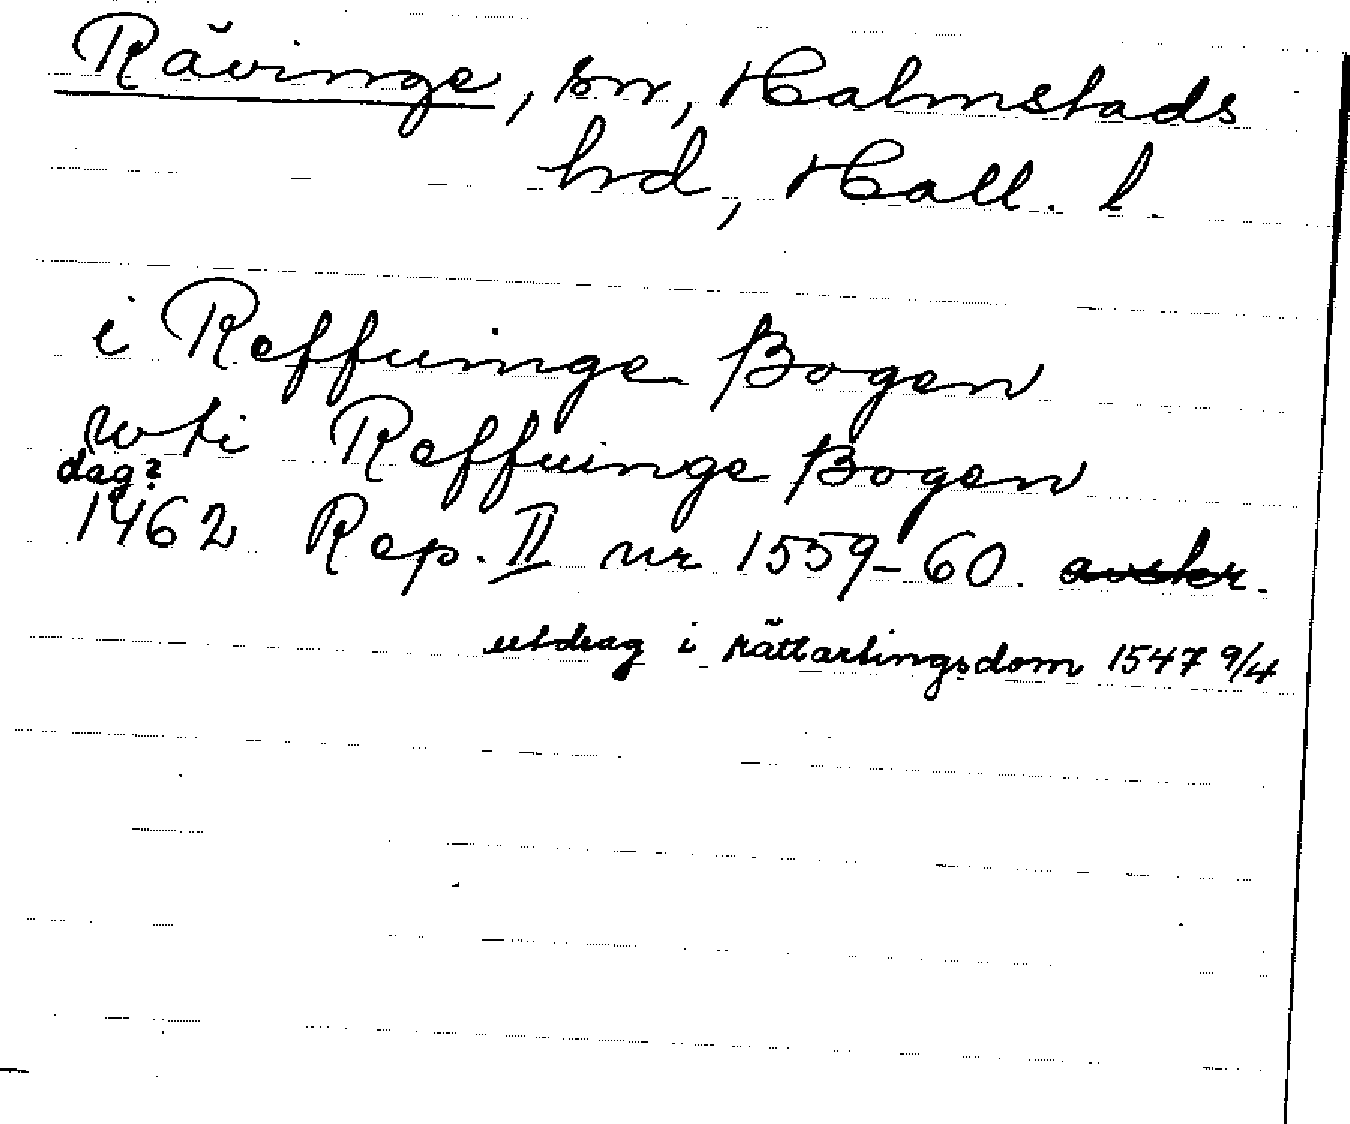 Rävinge, sn, Halmstads
hrd, Hall. l.
i Reffuinge Bogen
wti Reffuinge Bogen
dag?
1462 Rep. II nr 1559-60. avskr.
utdrag i rättartingsdom 1547 9/4